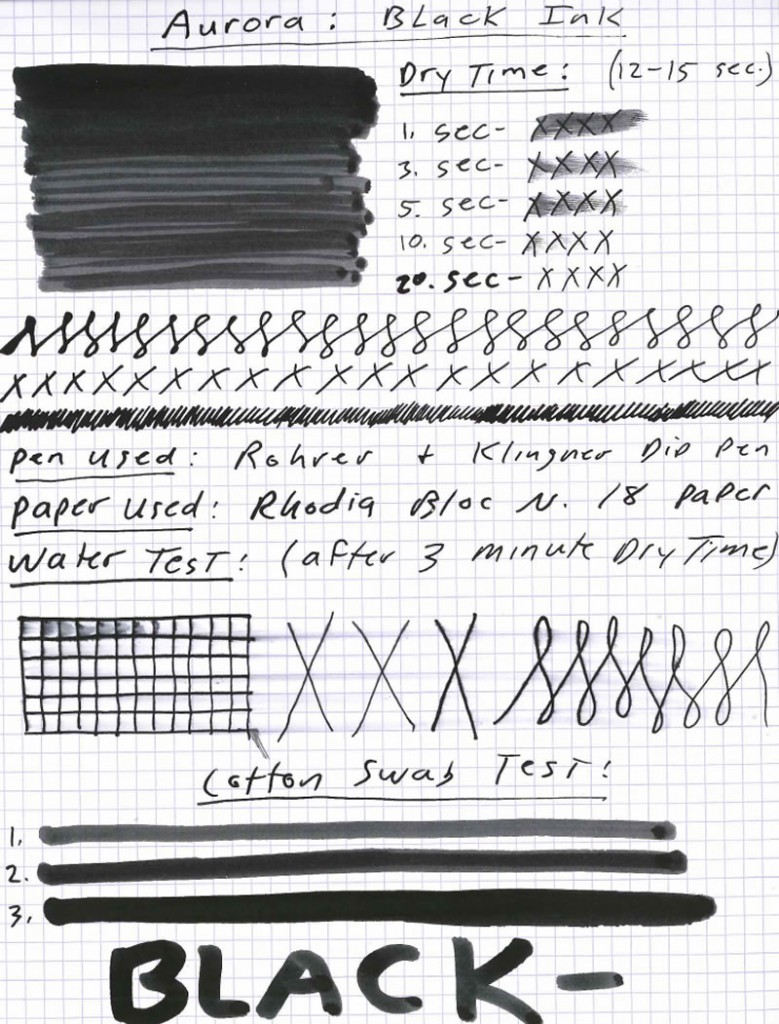 Aurora: Black Ink
Dry Time: (12-15 sec.)
1. sec- XXXX
3. sec- XXXX
5. sec- XXXX
10. sec- XXXX
20. sec- XXXX
X X X X X X X X X X X X X X X X X X X X X
Pen Used: Rohrer + Klingner Dip Pen
Paper Used: Rhodia Bloc N. 18 paper
Water Test: (after 3 minute Dry Time)
X X X
Cotton Swab Test:
1.
2.
3.
BLACK-